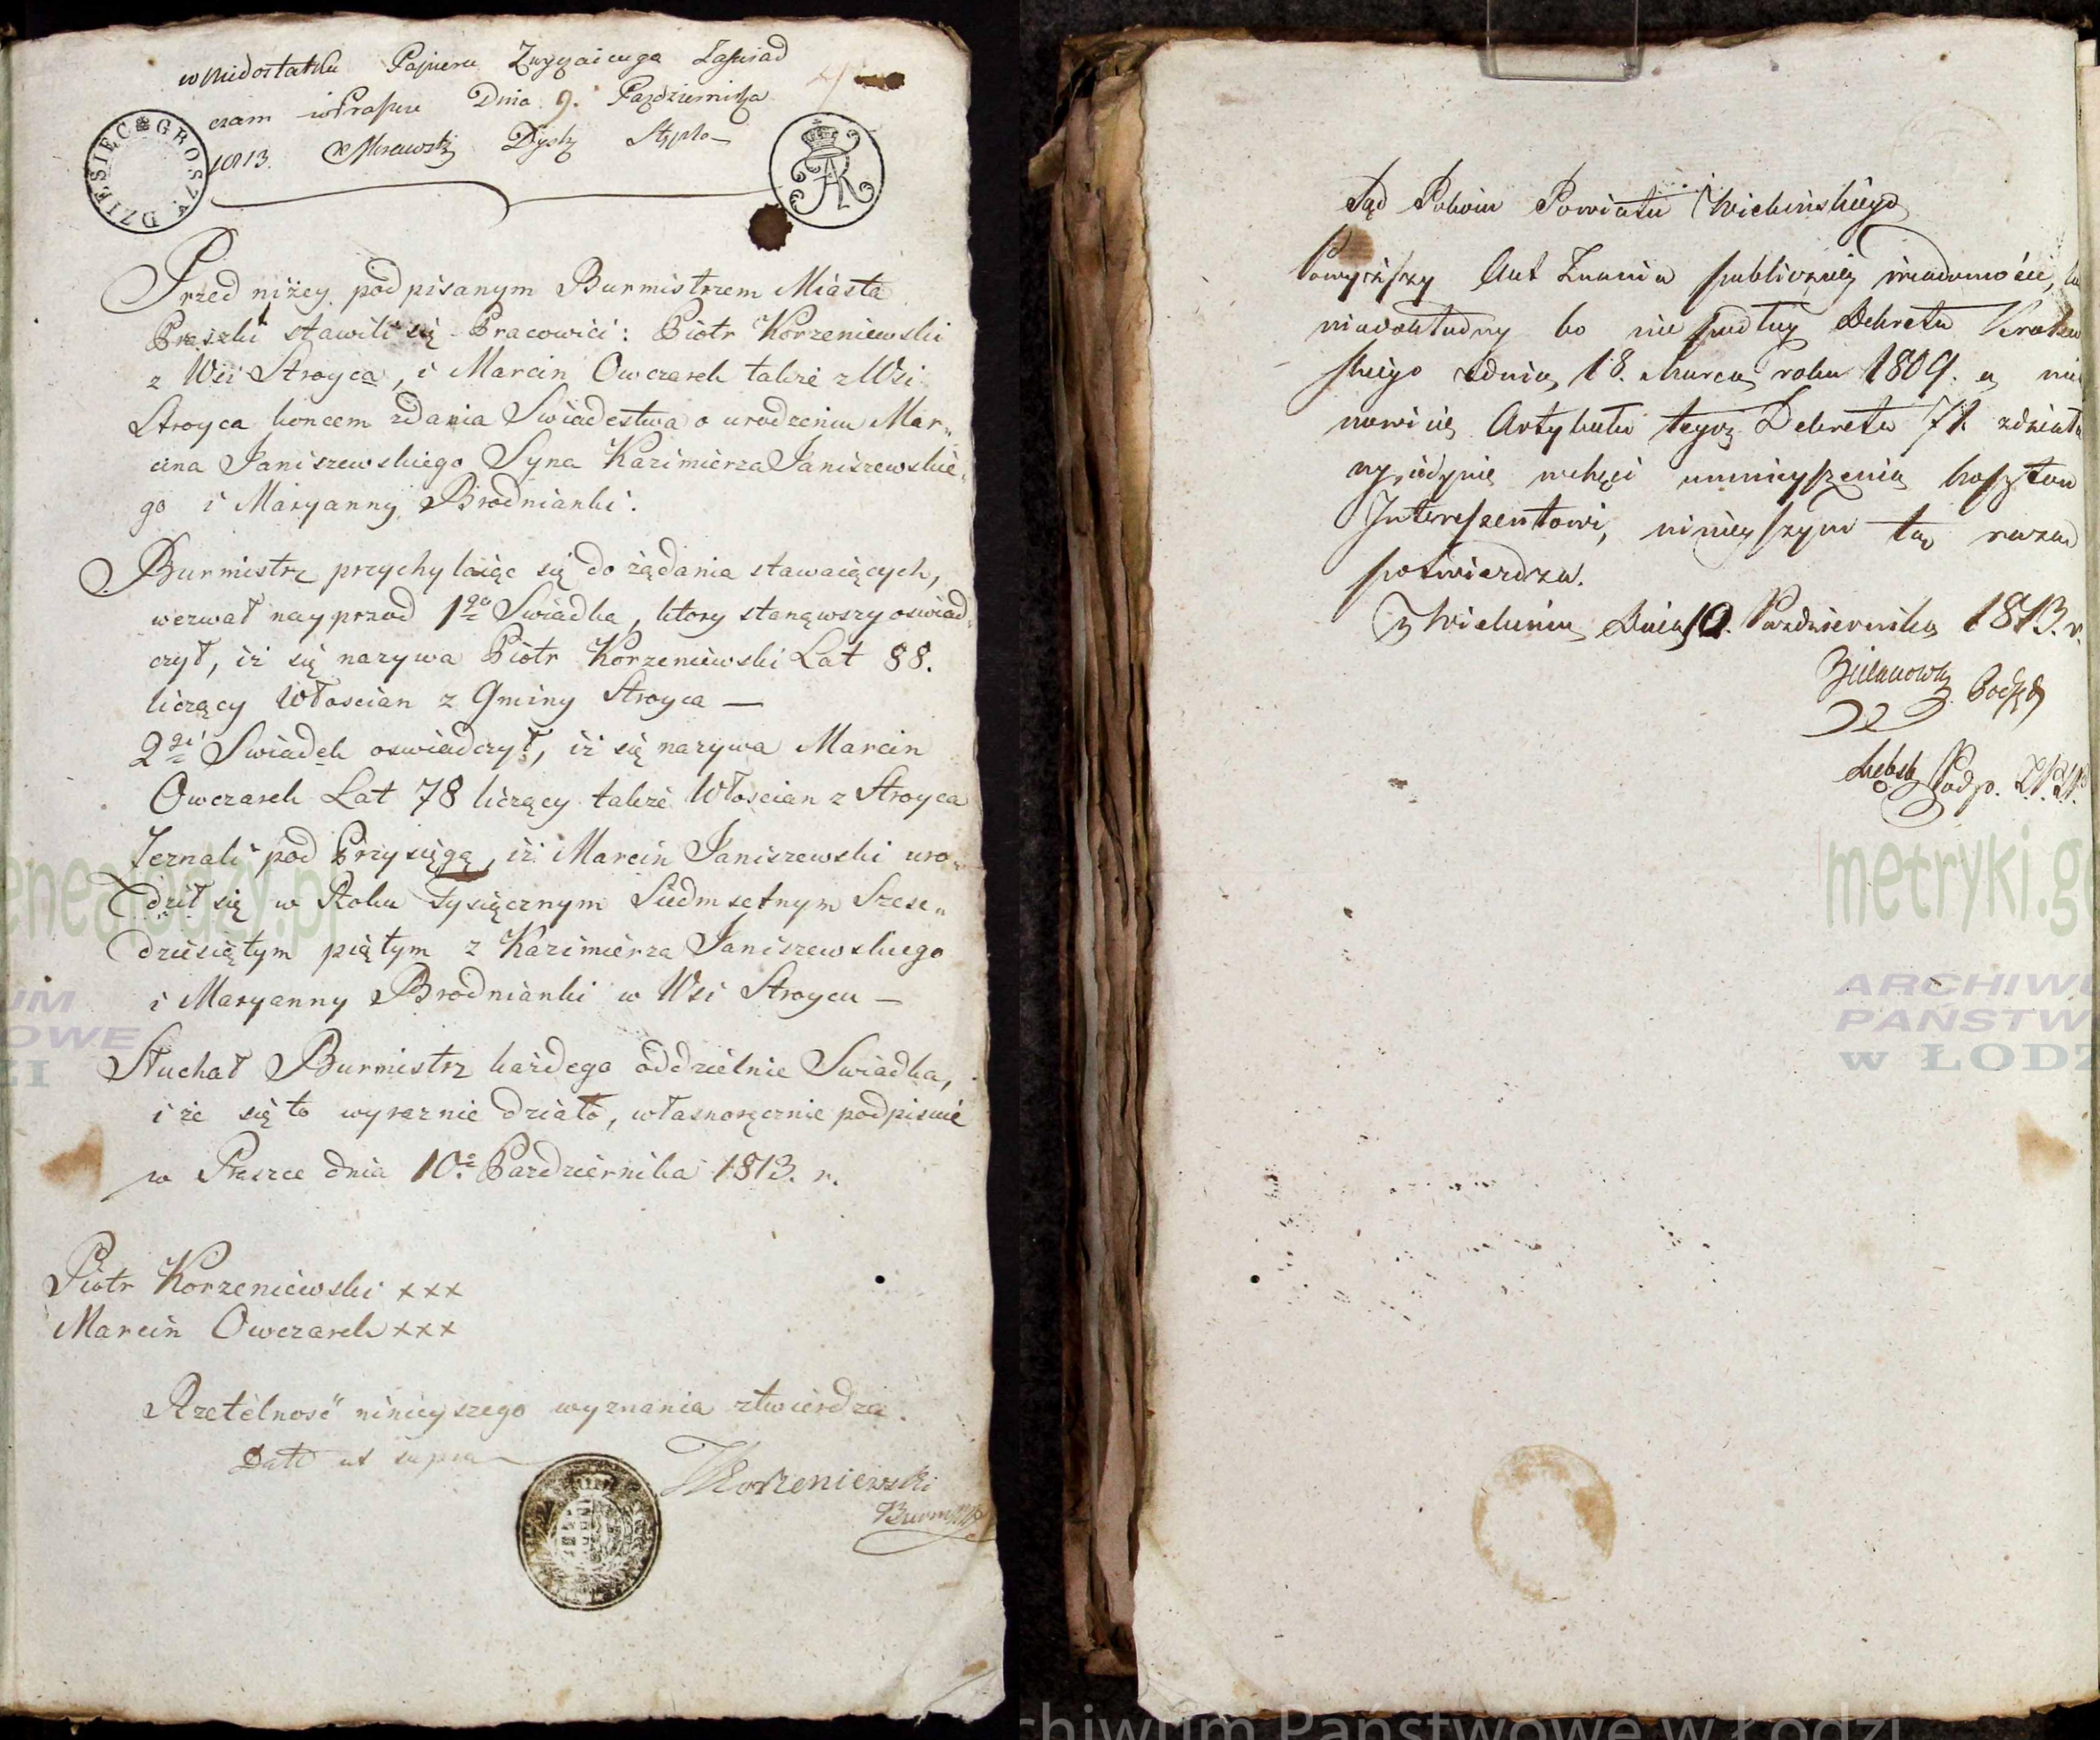 w Niedostatku Papieru Zwyczainego Zaświad
czam w Praszce Dnia 9. Października
1813. Dystr Stęplo
DZIESIEC GROSZY.
Przed niżey podpisanym Burmistrzem Miasta
Praszki stawili się Pracowici: Piotr Korzeniewski
z Wsi Stroyca, i Marcin Owczarek także z Wsi
Stroyca koncem zdania Swiadestwa o urodzeniu Mar„
cina Janiszewskiego Syna Kazimierza Janiszewskie„
go i Maryanny Brodnianki.
Burmistrz przychylaiąc się do żądania stawaiących,
wezwał nayprzod 1go Swiadka, ktory stanąwszy oswiad„
czył, iż się nazywa Piotr Korzeniewski Lat 88.
liczący Włoscian z Gminy Stroyca —
2gi Swiadek oswiadczył, iż się nazywa Marcin
Owczarek Lat 78 liczący także Włoscian z Stroyca
Zeznali pod Przysięgą, iż Marcin Janiszewski uro„
dził się w Roku Tysiącznym Siedmsetnym Szesc„
dziesiątym piątym z Kazimierza Janiszewskiego
i Maryanny Brodnianki w Wsi Stroycu —
Słuchał Burmistrz każdego oddzielnie Swiadka,
i że się to wyraznie działo, własnoręcznie podpisuie
w Praszce dnia 10. Pazdziernika 1813. r.
Piotr Korzeniewski xxx
Marcin Owczarek xxx
Rzetelność ninieyszego wyznania ztwierdza.
Datt ut supra
Korzeniewski
Burmistrz
Sąd Pokoiu Powiatu Wieluńskiego
Powyższy Akt Znania publiczney wiadomości,
niedokładny bo nie podług Dekretu Królew
skiego z dnia 18. Marca roku 1809. a mia
nowicie Artykułu tegoż Dekretu 71. zdziała
ny, iedynie w chęci umnieyszenia kosztów
Interessentowi, ninieyszym tą razą
potwierdza.
w Wieluniu Dnia 10. Pazdziernika 1813. r.
Podsęd
Podp.
genealodzy.pl
metryki.g
ARCHIWU
PAŃSTW
w ŁODZ
UM
OWE
ZI
chiwum Państwowe w Łodzi